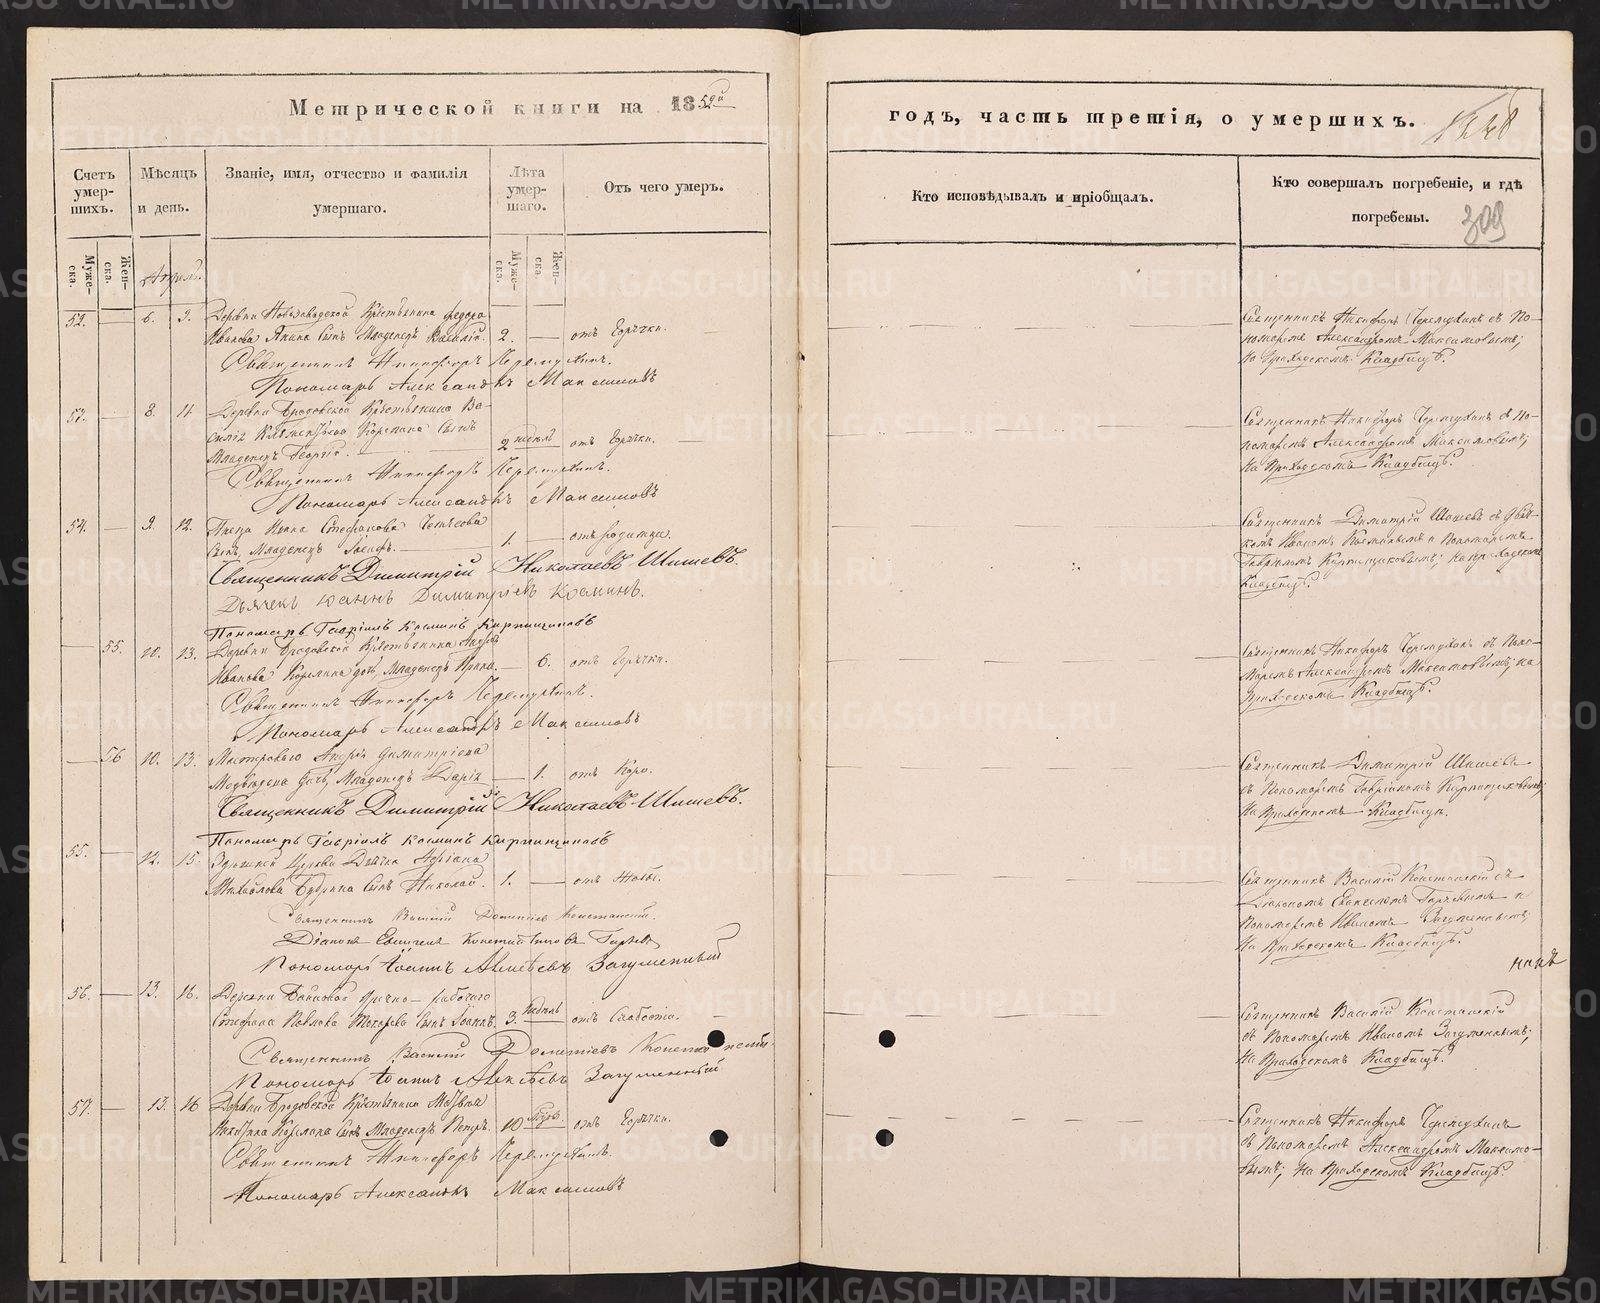 Метрической книги на 1852й
Счетъ умер-шихъ.
Мѣсяцъ и день.
Званіе, имя, отчество и фамилія умершаго.
Лѣта умер-шаго.
Отъ чего умеръ.
Муже-ска.
Жен-ска.
Муже-ска.
Жен-ска.
Апрѣль.
52. — 6. 9. Деревни Крестьянина Федора
Иванова сынъ Младенецъ Василій. 2. — отъ Горячки.
Священникъ Никифоръ Черемухинъ.
Пономарь Александръ Максимовъ
53. — 8. 11. Деревни Бродовской Крестьянина Ва-
силія Клементьева сынъ
Младенецъ Георгій. 2 недѣль — отъ Горячки.
Священникъ Никифоръ Черемухинъ.
Пономарь Александръ Максимовъ
54. — 9. 12. Писца Стефанова
сынъ, Младенецъ Іосифъ. 1. — отъ родимца.
Священникъ Димитрій Николаевъ Шишевъ.
Дьячекъ Іоаннъ Димитріевъ Косминъ.
Пономарь Гавріилъ Косминъ Кирпищиковъ
— 55. 10. 13. Деревни Бродовской Крестьянина Андрея
Иванова дочь, Младенецъ Ирина. — 6. отъ Горячки.
Священникъ Никифоръ Черемухинъ.
Пономарь Александръ Максимовъ
— 56 10. 13. Мастероваго Андрея Димитріева
Медвѣдева дочь, Младенецъ Дарія — 1. отъ Кори.
Священникъ Димитрій Николаевъ Шишевъ.
Пономарь Гавріилъ Косминъ Кирпищиковъ
55. — 12. 15. Здѣшней Церкви Дьячка
Михайлова сынъ Николай. 1. — отъ
Священникъ Василій Дометіевъ Конестанскій.
Діаконъ Евангелъ Константиновъ
Пономарь Іоаннъ Алексѣевъ Загуменный
56. — 13. 16. Деревни рабочаго
Стефана Павлова Токарева сынъ Іоаннъ. 3. недѣль — отъ Слабости.
Священникъ Василій Дометіевъ
Пономарь Іоаннъ Алексѣевъ Загуменный
57. — 13. 16 Деревни Бродовской Крестьянина Матвея
Никитина сынъ Младенецъ Петръ. 10 — отъ Горячки.
Священникъ Никифоръ Черемухинъ.
Пономарь Александръ Максимовъ
годъ, часть третія, о умершихъ.
Кто исповѣдывалъ и пріобщалъ.
Кто совершалъ погребеніе, и гдѣ погребены.
309
Священникъ Никифоръ Черемухинъ съ По-
номаремъ Александромъ Максимовымъ;
на Приходскомъ Кладбищѣ.
Священникъ Никифоръ Черемухинъ съ По-
номаремъ Александромъ Максимовымъ;
на Приходскомъ Кладбищѣ.
Священникъ Димитрій Шишевъ съ Дьяч-
комъ Иваномъ Косминымъ и Пономаремъ
Гавріиломъ Кирпищиковымъ; на приходскомъ
Кладбищѣ.
Священникъ Никифоръ Черемухинъ съ Поно-
маремъ Александромъ Максимовымъ; на
приходскомъ Кладбищѣ.
Священникъ Димитрій Шишевъ
съ Пономаремъ Гавріиломъ Кирпищиковымъ;
на Приходскомъ Кладбищѣ.
Священникъ Василій Конестанскій съ
Діакономъ Евангеломъ и
Пономаремъ Иваномъ Загуменнымъ;
на Приходскомъ Кладбищѣ.
Священникъ Василій Конестанскій
съ Пономаремъ Иваномъ Загуменнымъ;
на Приходскомъ Кладбищѣ.
Священникъ Никифоръ Черемухинъ
съ Пономаремъ Александромъ Максимо-
вымъ; на Приходскомъ Кладбищѣ.
METRIKI.GASO-URAL.RU